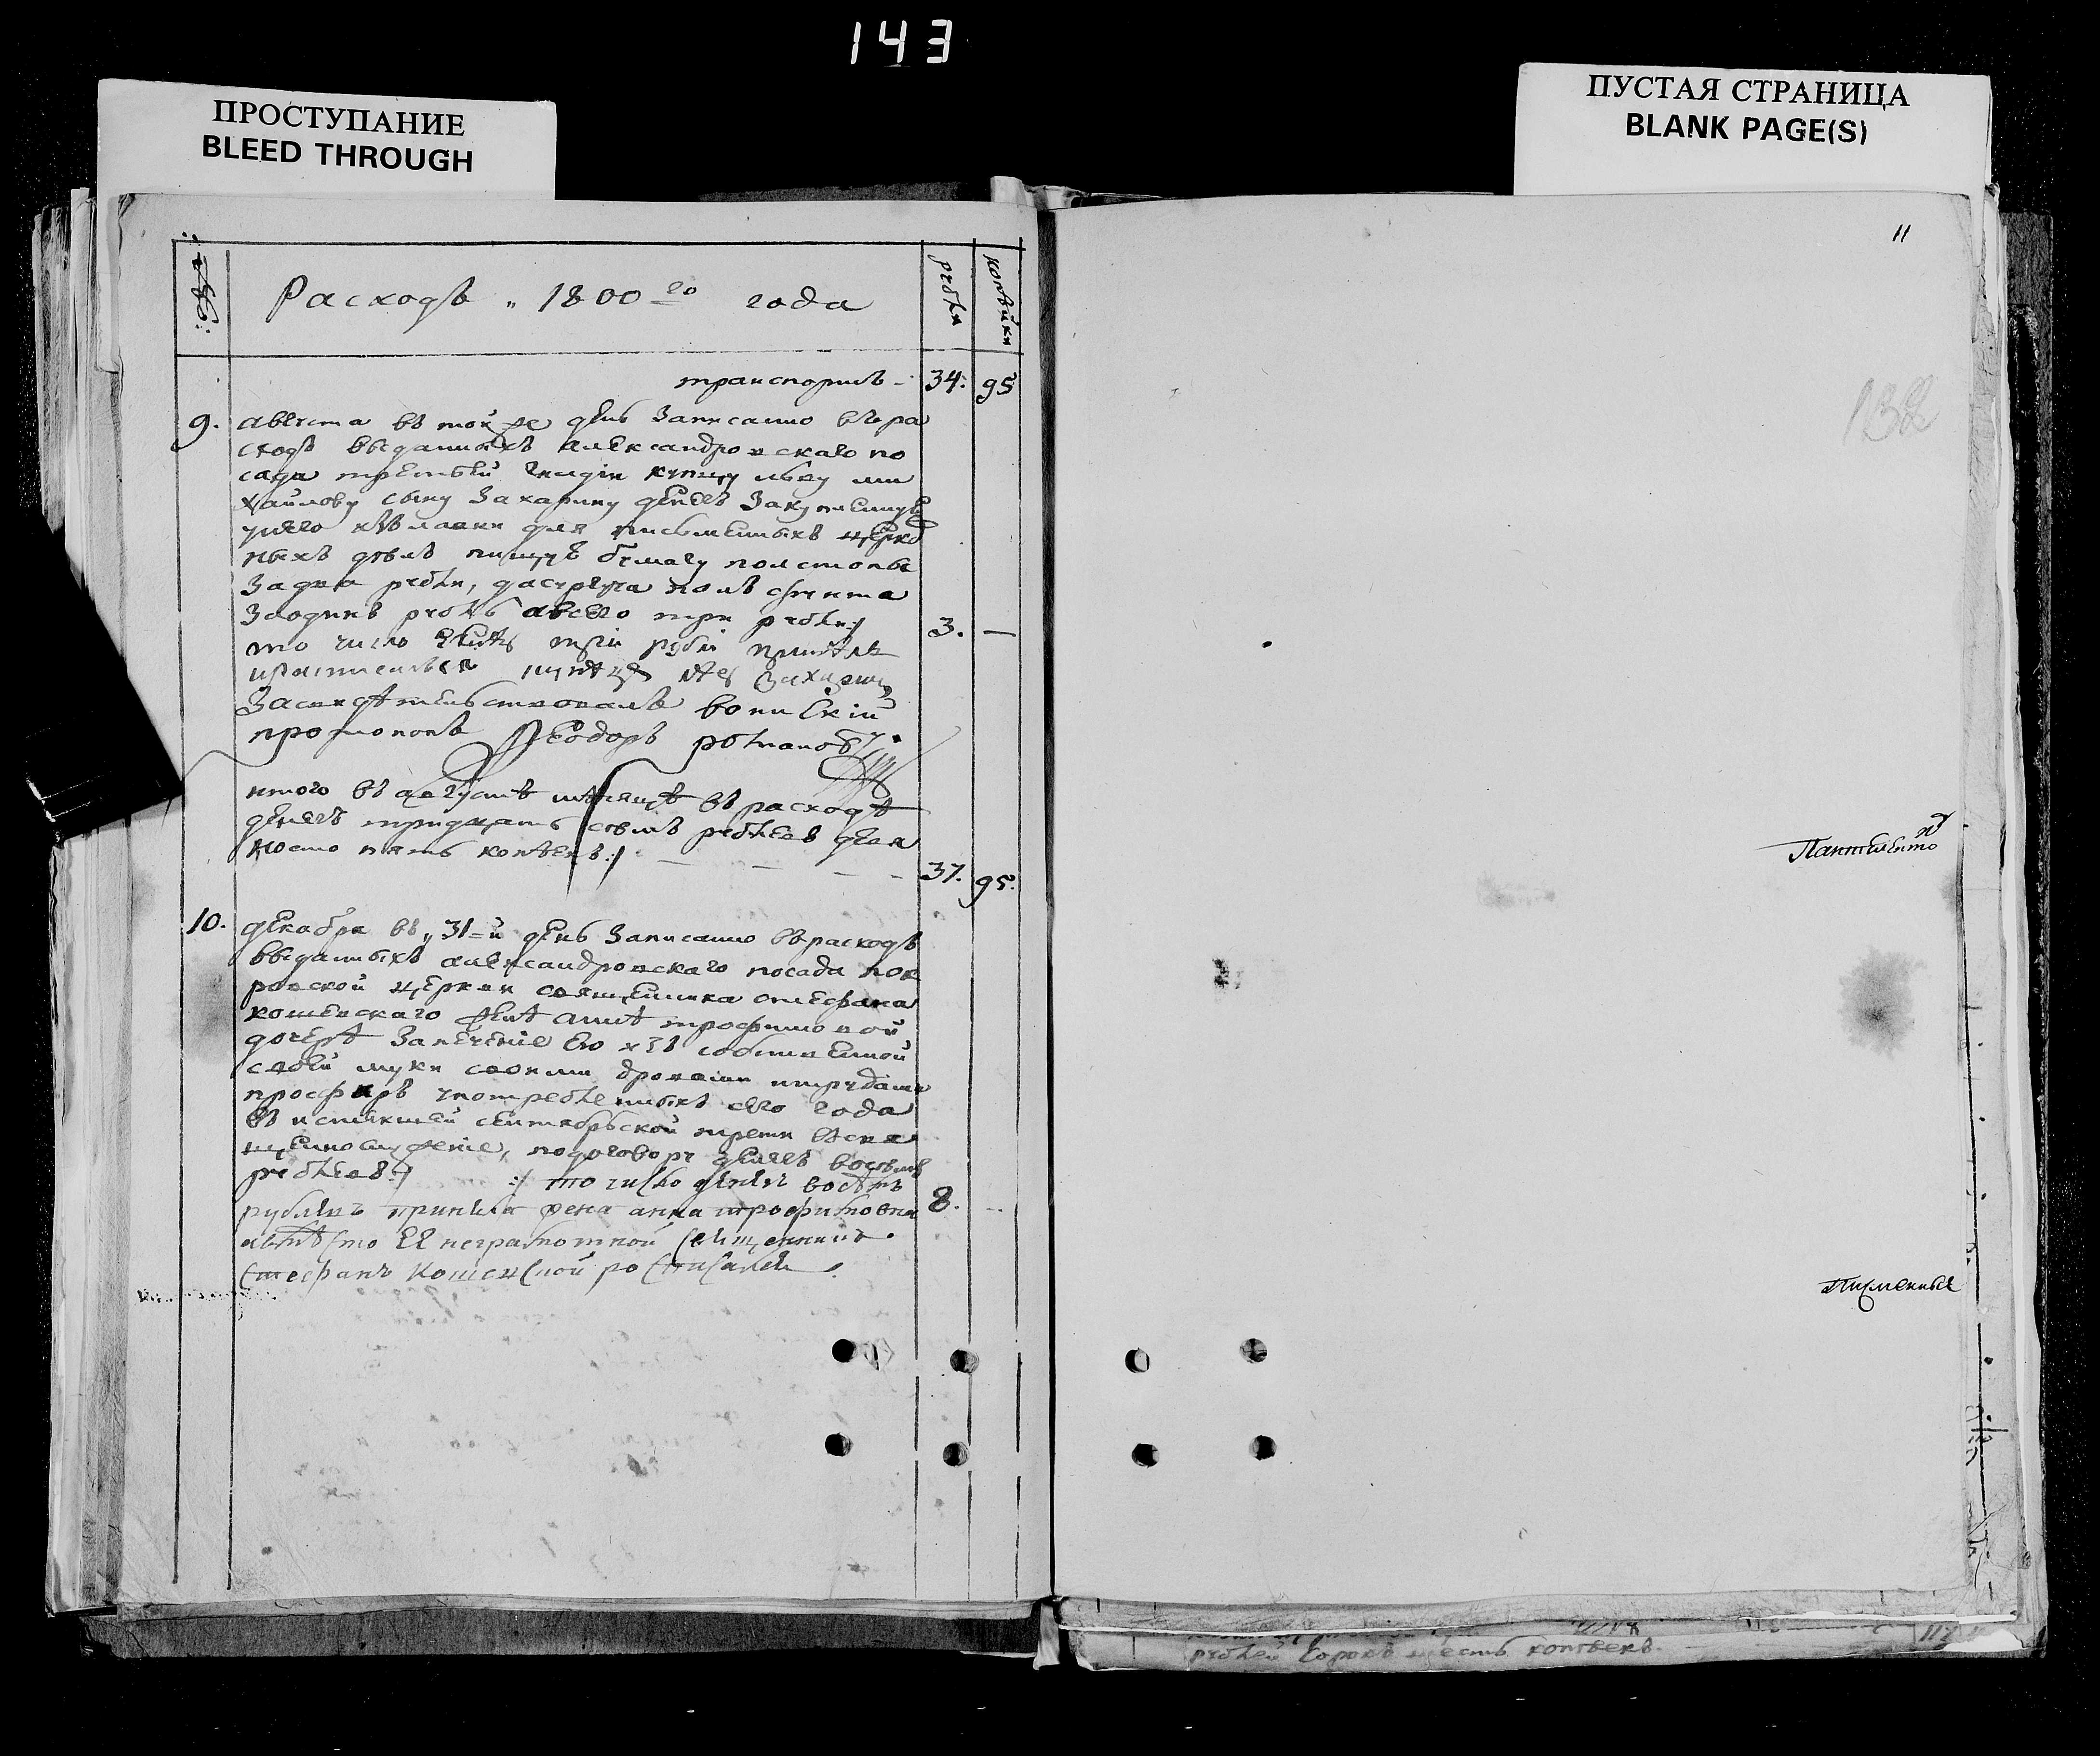 143
ПРОСТУПАНИЕ
BLEED THROUGH
ПУСТАЯ СТРАНИЦА
BLANK PAGE(S)
11
132
Расходъ „ 1800 го года
рубли
копѣйки
транспортъ - 34. 95
9. августа въ той же день записанно въ ра
сходъ выданныхъ александровскаго по
сада третьей гилдіи купцу льву ми
хайлову сыну Захарину денегъ за купленную
у него лавки для письменныхъ церков
ныхъ делъ пищую бумагу полстопы
за два рубли, да сургуча полъ фунта
за одинъ рубль а всего три рубли:/ 3. —
то число денегъ три рубли принялъ
купецъ левъ Захаринъ
Засвидѣтельствовалъ
протопопъ Феодоръ романовъ
итого въ августѣ мѣсяцѣ въ расходѣ
денегъ тридцать семь рублевъ девя
носто пять копѣекъ:/ — — — - 37. 95.
10. декабря въ „ 31-й день записанно въ расходъ
выданныхъ александровскаго посада пок
ровской церкви священника стефана
кошевскаго женѣ аннѣ трофимовой
дочерѣ за печеніе ею изъ собственной
своей муки своими дровами и трудами
просфоръ употребленныхъ сего года
въ истекшей сентябрьской трети
щеннослуженіе, по договору денегъ восемь
рублевъ:/ :/ то число денегъ восемъ
рублевъ приняла жена анна трофимовна 8. --
а вмѣсто ее неграмотной священникъ
Стефанъ росписался
Письменные
рублей сорокъ шесть копѣекъ.